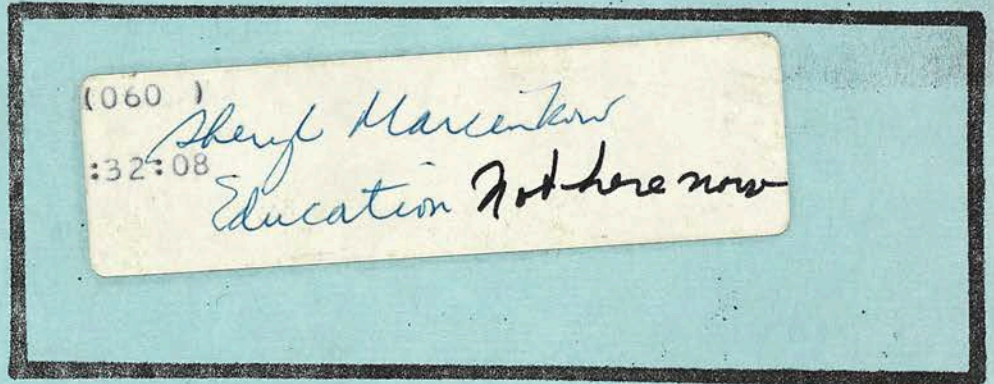 (060 )
Sheryl Marcinkow
:32:08
Education Not here now